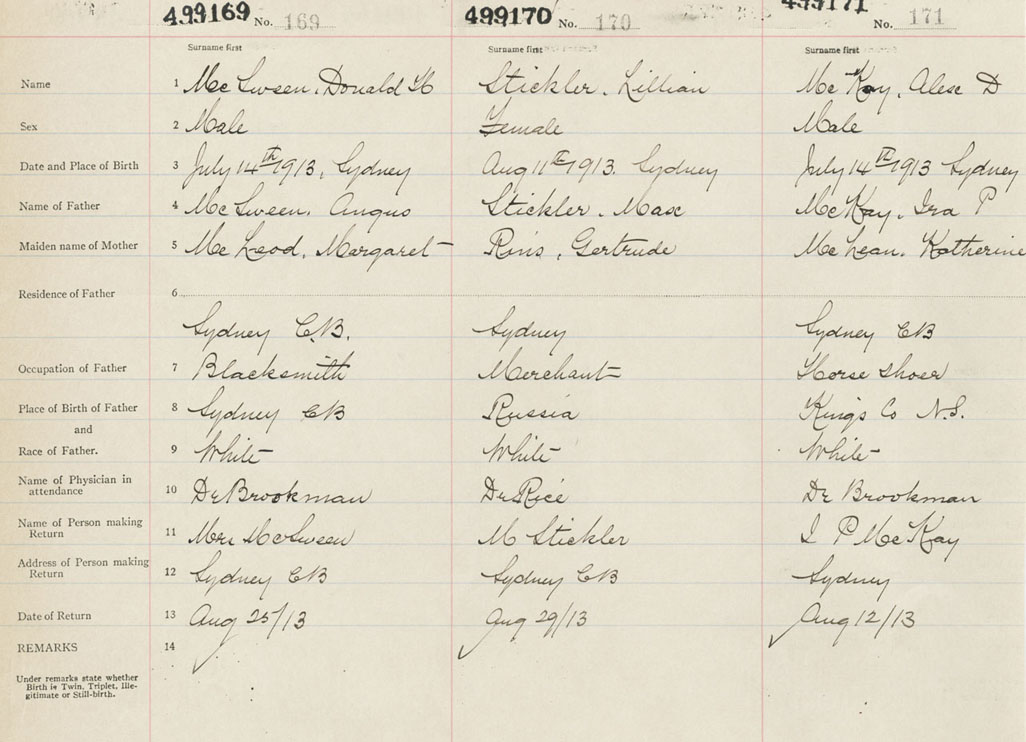 499169 No. 169 499170 No. 170 499171 No. 171
Surname first Surname first Surname first
Name 1 McSween, Donald Stickler, Lillian McKay, Alex D
Sex 2 Male Female Male
Date and Place of Birth 3 July 14th 1913, Sydney Aug 11th 1913. Sydney July 14th 1913 Sydney
Name of Father 4 McSween, Angus Stickler, Max McKay, Ira P
Maiden name of Mother 5 McLeod, Margaret Gertrude McLean, Katherine
Residence of Father 6
Sydney C.B. Sydney Sydney CB
Occupation of Father 7 Blacksmith Merchant Horse Shoer
Place of Birth of Father 8 Sydney CB Russia Kings Co N.S.
and
Race of Father. 9 White White White
Name of Physician in
attendance 10 Dr Brookman Dr Rice Dr Brookman
Name of Person making
Return 11 Mrs McSween M Stickler I P McKay
Address of Person making
Return 12 Sydney CB Sydney CB Sydney
Date of Return 13 Aug 25/13 Aug 29/13 Aug 12/13
REMARKS 14
Under remarks state whether
Birth is Twin, Triplet, Ille-
gitimate or Still-birth.